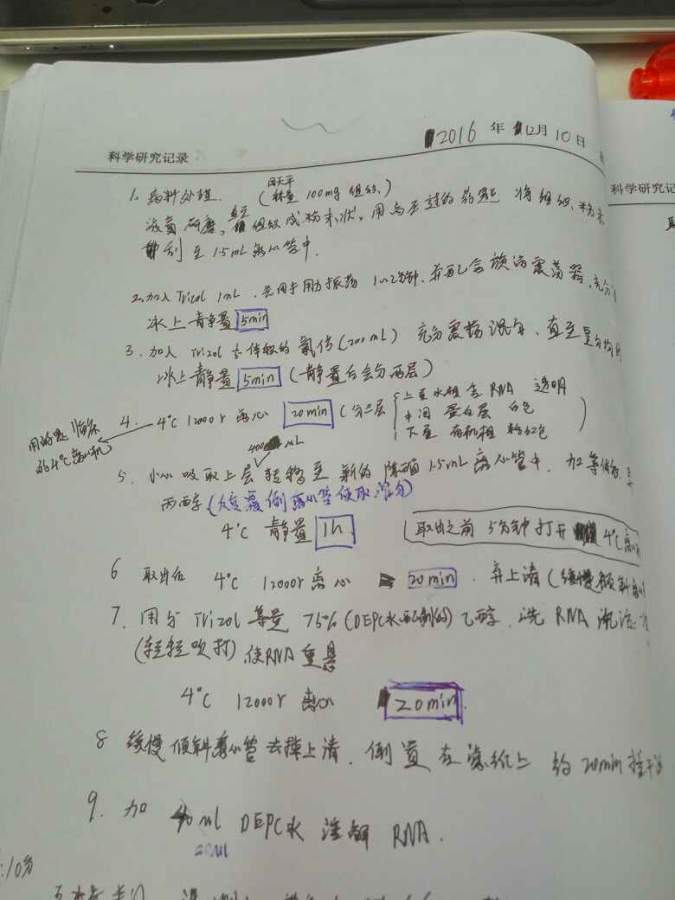 2016 年 12月 10日
科学研究记录
科学研究记
1. 病料处理. (称量 100mg 组织.)
液氮研磨, 组织成粉末状. 用 的药匙 将组织 粉末
刮至 1.5mL 离心管中.
2. 加入 Trizol 1mL . 用力振荡 1~2分钟. 震荡器,充分
冰上静置 5min
3. 加入 Trizol 体积的 氯仿(200mL) 充分震荡混匀. 直至
冰上静置 5min (静置后会分两层)
4. 4℃ 12000r 离心 20min (分三层
上层水相 含 RNA 透明
中间 蛋白层 白色
下层 有机相 粉红色
4℃离心机
400 uL
5. 小心吸取上层 转移至 新的 1.5mL 离心管中. 加等体积
丙醇
4℃ 静置 1h
取出之前 5分钟打开 4℃离
6 取出后 4℃ 12000r 离心 20min . 弃上清 (缓慢倾斜
7. 用与 Trizol 等量 75% (DEPC水配制的) 乙醇. 洗 RNA 沉淀
(轻轻吹打) 使RNA重悬
4℃ 12000r 离心 20min.
8 缓慢倾斜离心管去掉上清. 倒置在滤纸上 约 20min
9. 加 ul DEPC水 溶解 RNA.
20ul
:10分